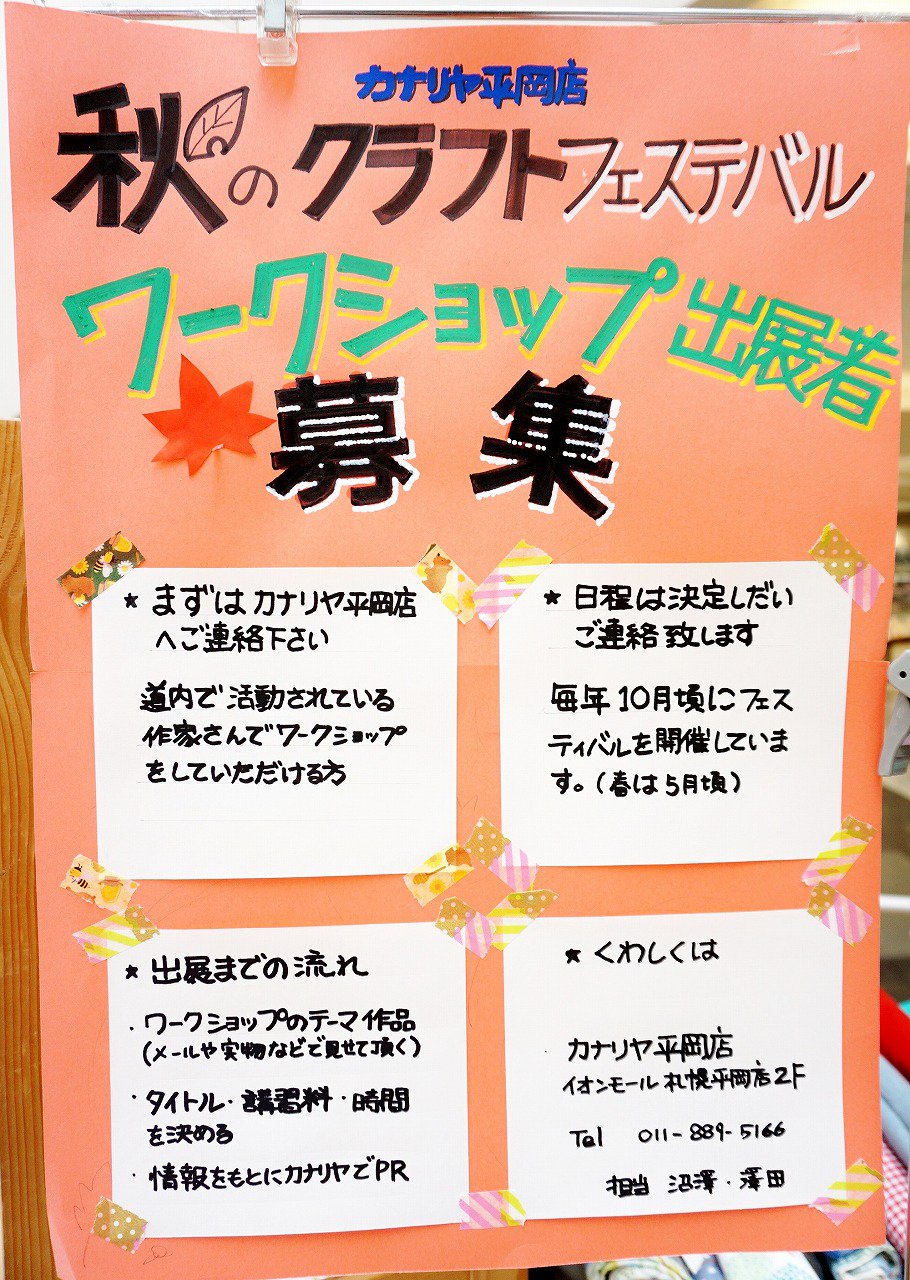 カナリヤ平岡店
秋のクラフトフェステバル
ワークショップ出展者
募集
★ まずはカナリヤ平岡店
へご連絡下さい
道内で活動されている
作家さんでワークショップ
をしていただける方
★ 日程は決定しだい
ご連絡致します
毎年10月頃にフェス
ティバルを開催していま
す。(春は5月頃)
★ 出展までの流れ
・ワークショップのテーマ作品
(メールや実物などで見せて頂く)
・タイトル・講習料・時間
を決める
・情報をもとにカナリヤでPR
★ くわしくは
カナリヤ平岡店
イオンモール札幌平岡店2F
Tel 011-889-5166
担当 沼澤・澤田